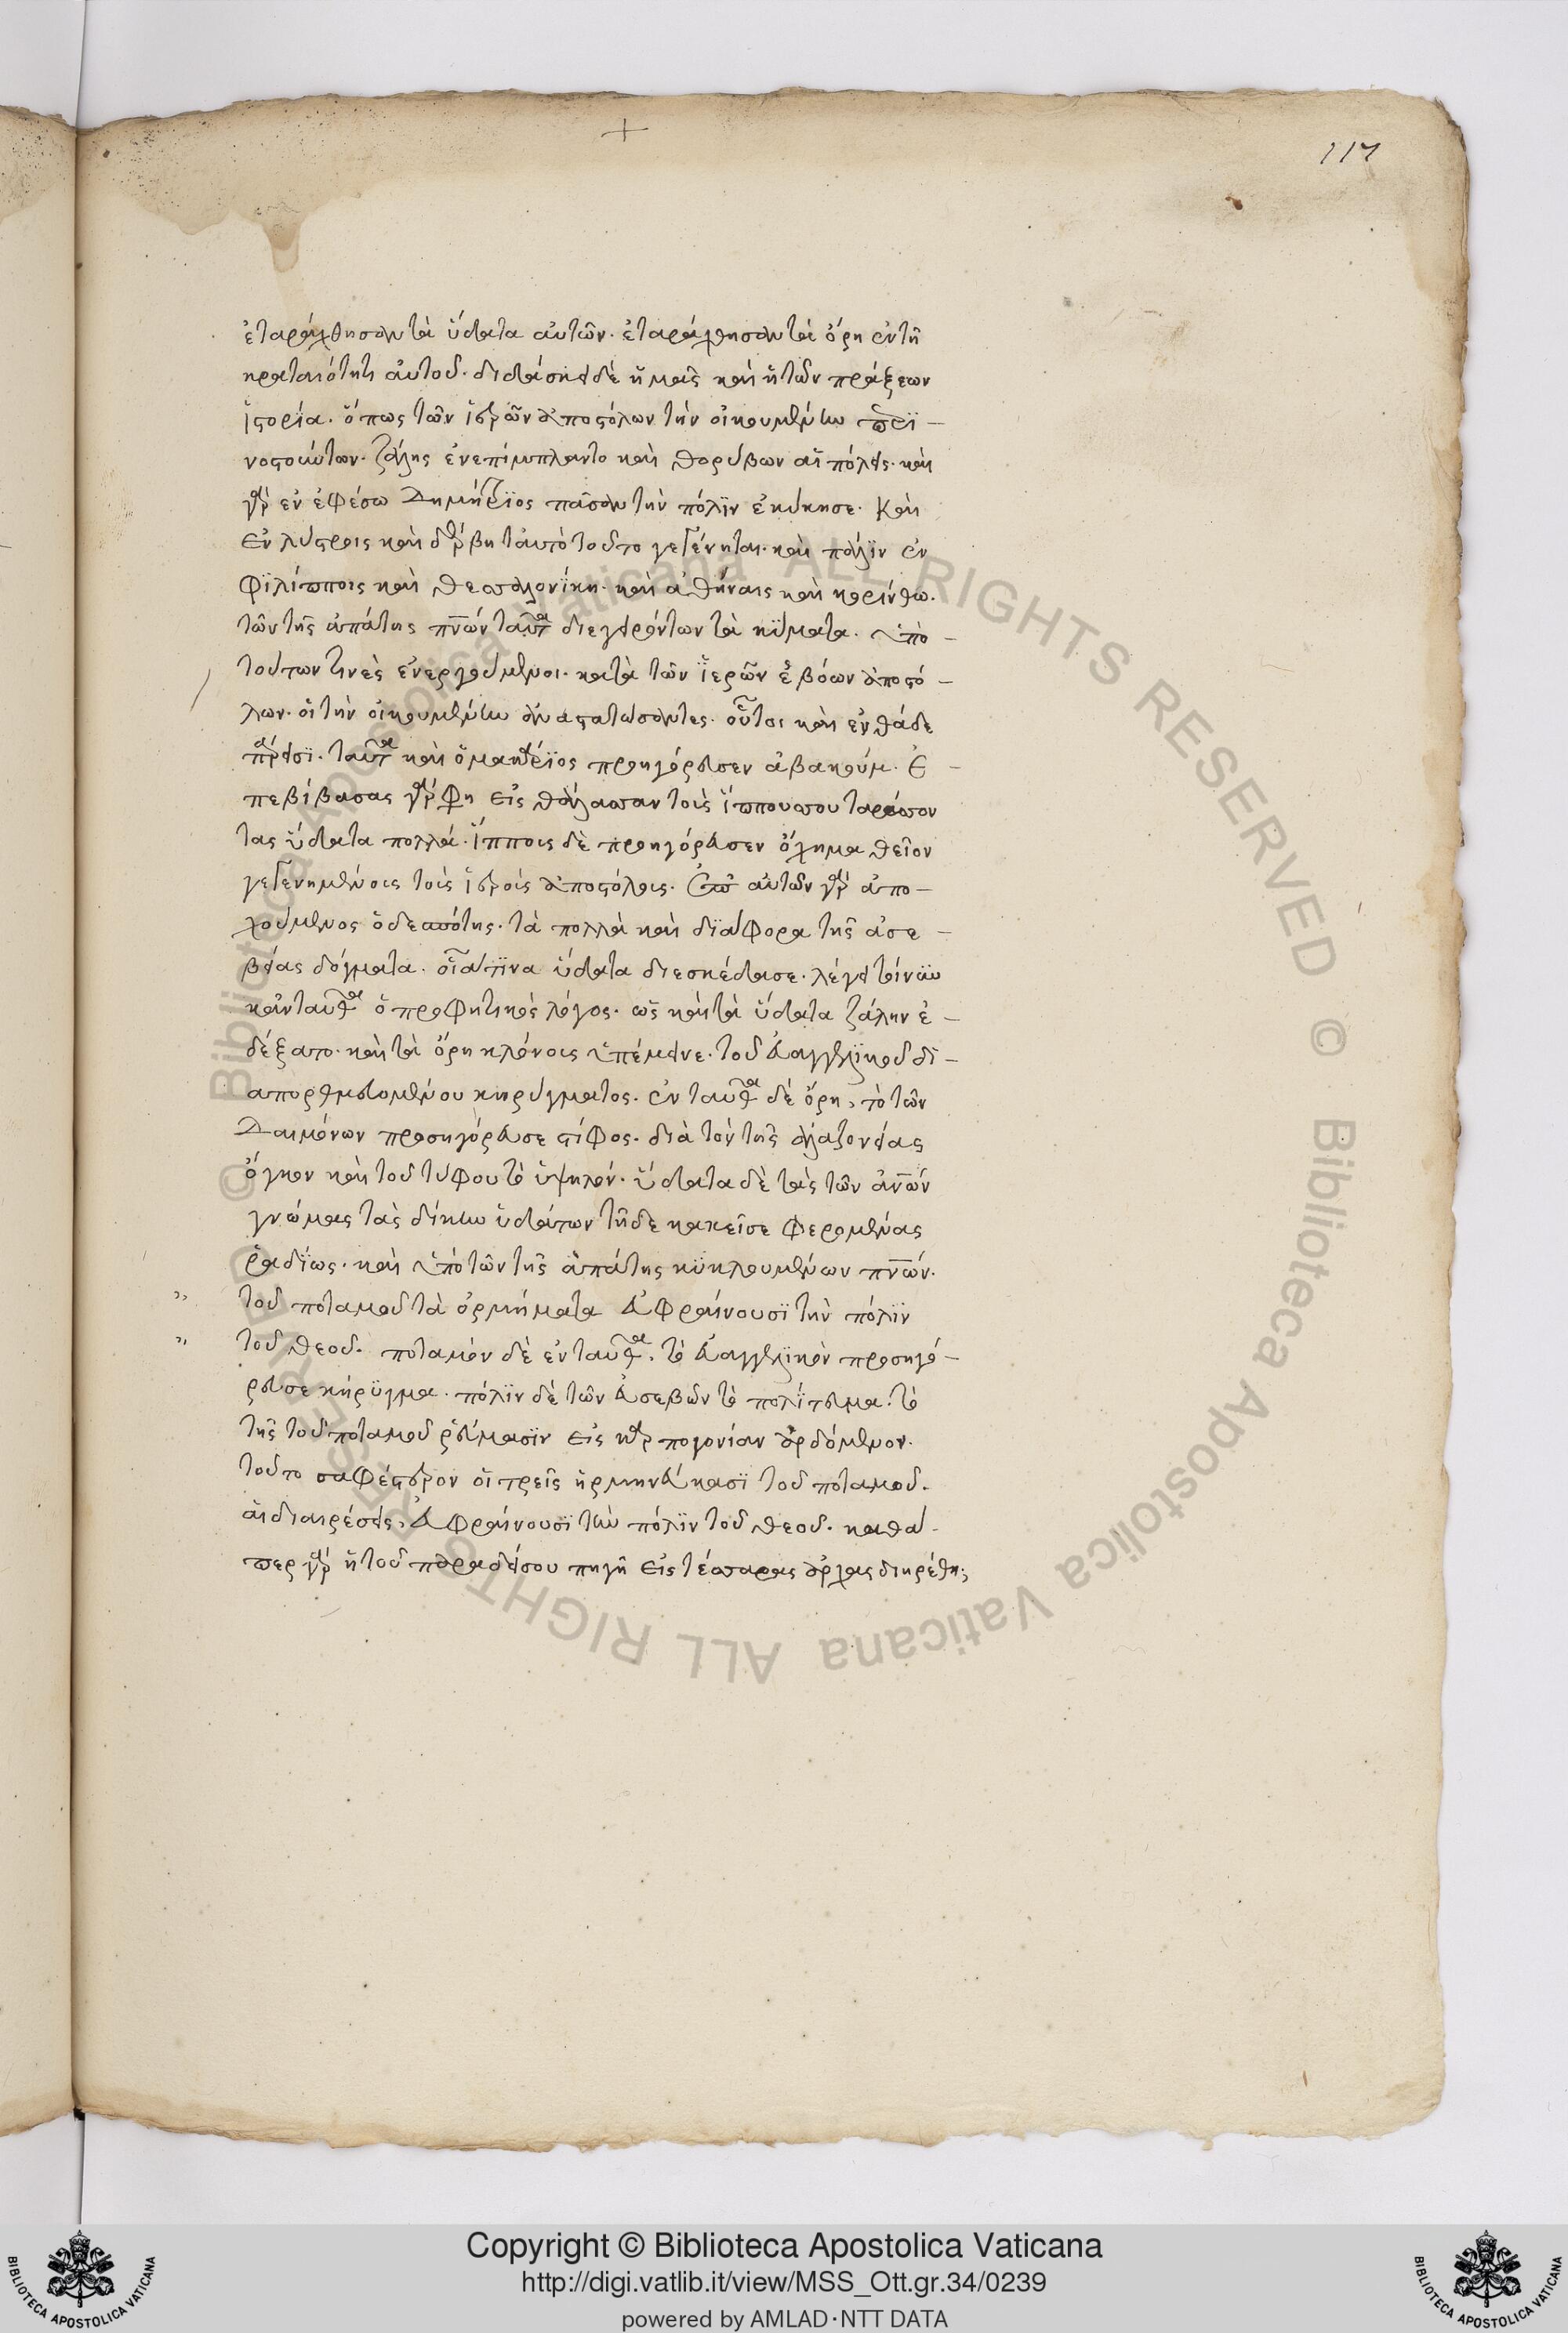 +
117
ἐταράχθησαν τὰ ὕδατα αὐτῶν· ἐταράχθησαν τὰ ὄρη ἐν τῆ
κραταιότητι αὐτοῦ· διδάσκει δὲ ἡμᾶς καὶ ἡ τῶν πράξεων
ἱστορία· ὅπως τῶν ἱερῶν ἀποστόλων τὴν οἰκουμένην περϊ–
νοστούντων· ζάλης ἐνεπίμπλαντο καὶ θορύβων αἱ πόλεις· καὶ
γὰρ εν ἐφέσω Δημήτρϊος πᾶσαν τὴν πόλϊν ἐκύκησε· Καὶ
εν λύστροις καὶ δέρβη ταυτὸ τοῦτο γεγένηται· καὶ πάλϊν ἐν
Φϊλίπποις καὶ θεσσαλονίκη· καὶ ἀθήναις καὶ κορίνθω·
τῶν τῆς ἀπάτης πν̅ων ταῦτα διεγειρόντων τὰ κύματα· ὑπὸ –
τούτων τινὲς ἐνεργούμενοι· κατὰ τῶν ϊερῶν ἐβόων ἀποστό–
λων· οἱ τὴν οἰκουμένην ἀναστατώσαντες· οὗτοι καὶ ενθάδε
πάρεισϊ· ταῦτα καὶ ὁ μακάρϊος προηγόρευσεν ἀβακούμ· Ἐ–
πεβίβασας γὰρ φη εἰς θάλασσαν τοὺς ἵππους σου ταράσσον
τας ὕδατα πολλά· ἵπποις δὲ προηγόρευσεν ὄχημα θεῖον
γεγενημένοις τοῖς ἱεροῖς ἀποστόλοις· Ἐπ αὐτῶν γὰρ ἀπο–
χούμενος ὁ δεσπότης· τὰ πολλὰ καὶ διάφορα τῆς ἀσε–
βείας δόγματα· οἷά τϊνα ὕδατα διεσκέδασε· λέγει τοίνυν
κἀνταῦθα ὁ προφητικὸς λόγος· ὡς καὶ τὰ ὕδατα ζάλην ἐ–
δέξατο· καὶ τὰ ὄρη κλόνοις ὑπέμεινε· τοῦ εὐαγγελϊκοῦ δϊ–
απορθμευομένου κηρύγματος· ἐνταῦθα δέ ὄρη, τὸ τῶν
Δαιμόνων προσηγόρευσε στίφος· διὰ τὸν τῆς ἀλαζονείας
ὄγκον καὶ τοῦ τύφου τὸ ὑψηλόν· ὕδατα δὲ τὰς τῶν ἀν̅ων
γνώμας τὰς δίκην ὑδάτων τῆδε κακεῖσε φερομένας
ῥαδΐως· καὶ ὑπὸ τῶν τῆς ἀπάτης κϋκλουμένων πν̅ων·
" τοῦ ποταμοῦ τὰ ὁρμήματα εὐφραίνουσϊ τὴν πόλϊν
" τοῦ θεοῦ· ποταμὸν δὲ ἐνταῦθα, τὸ εὐαγγελϊκὸν προσηγό–
ρευσε κήρϋγμα· πόλϊν δὲ τῶν εὐσεβῶν τὸ πολίτευμα· τὸ
τῆς τοῦ ποταμοῦ ῥεύμασϊν εἰς καρπογονίαν ἀρδόμενον·
τοῦτο σαφέστερον οἱ τρεῖς ἡρμηνεύκασϊ τοῦ ποταμοῦ·
αἱ διαιρέσεις, εὐφραίνουσϊ τὴν πόλϊν τοῦ θεοῦ· καθά–
περ γὰρ ἡ τοῦ παραδείσου πηγὴ εἰς τέσσαρας ἀρχας διηρέθη;
Copyright © Biblioteca Apostolica Vaticana
http://digi.vatlib.it/view/MSS_Ott.gr.34/0239
powered by AMLAD·NTT DATA
BIBLIOTECA APOSTOLICA VATICANA
BIBLIOTECA APOSTOLICA VATICANA
© Biblioteca Apostolica Vaticana ALL RIGHTS RESERVED © Biblioteca Apostolica Vaticana ALL RIGHTS RESERVED